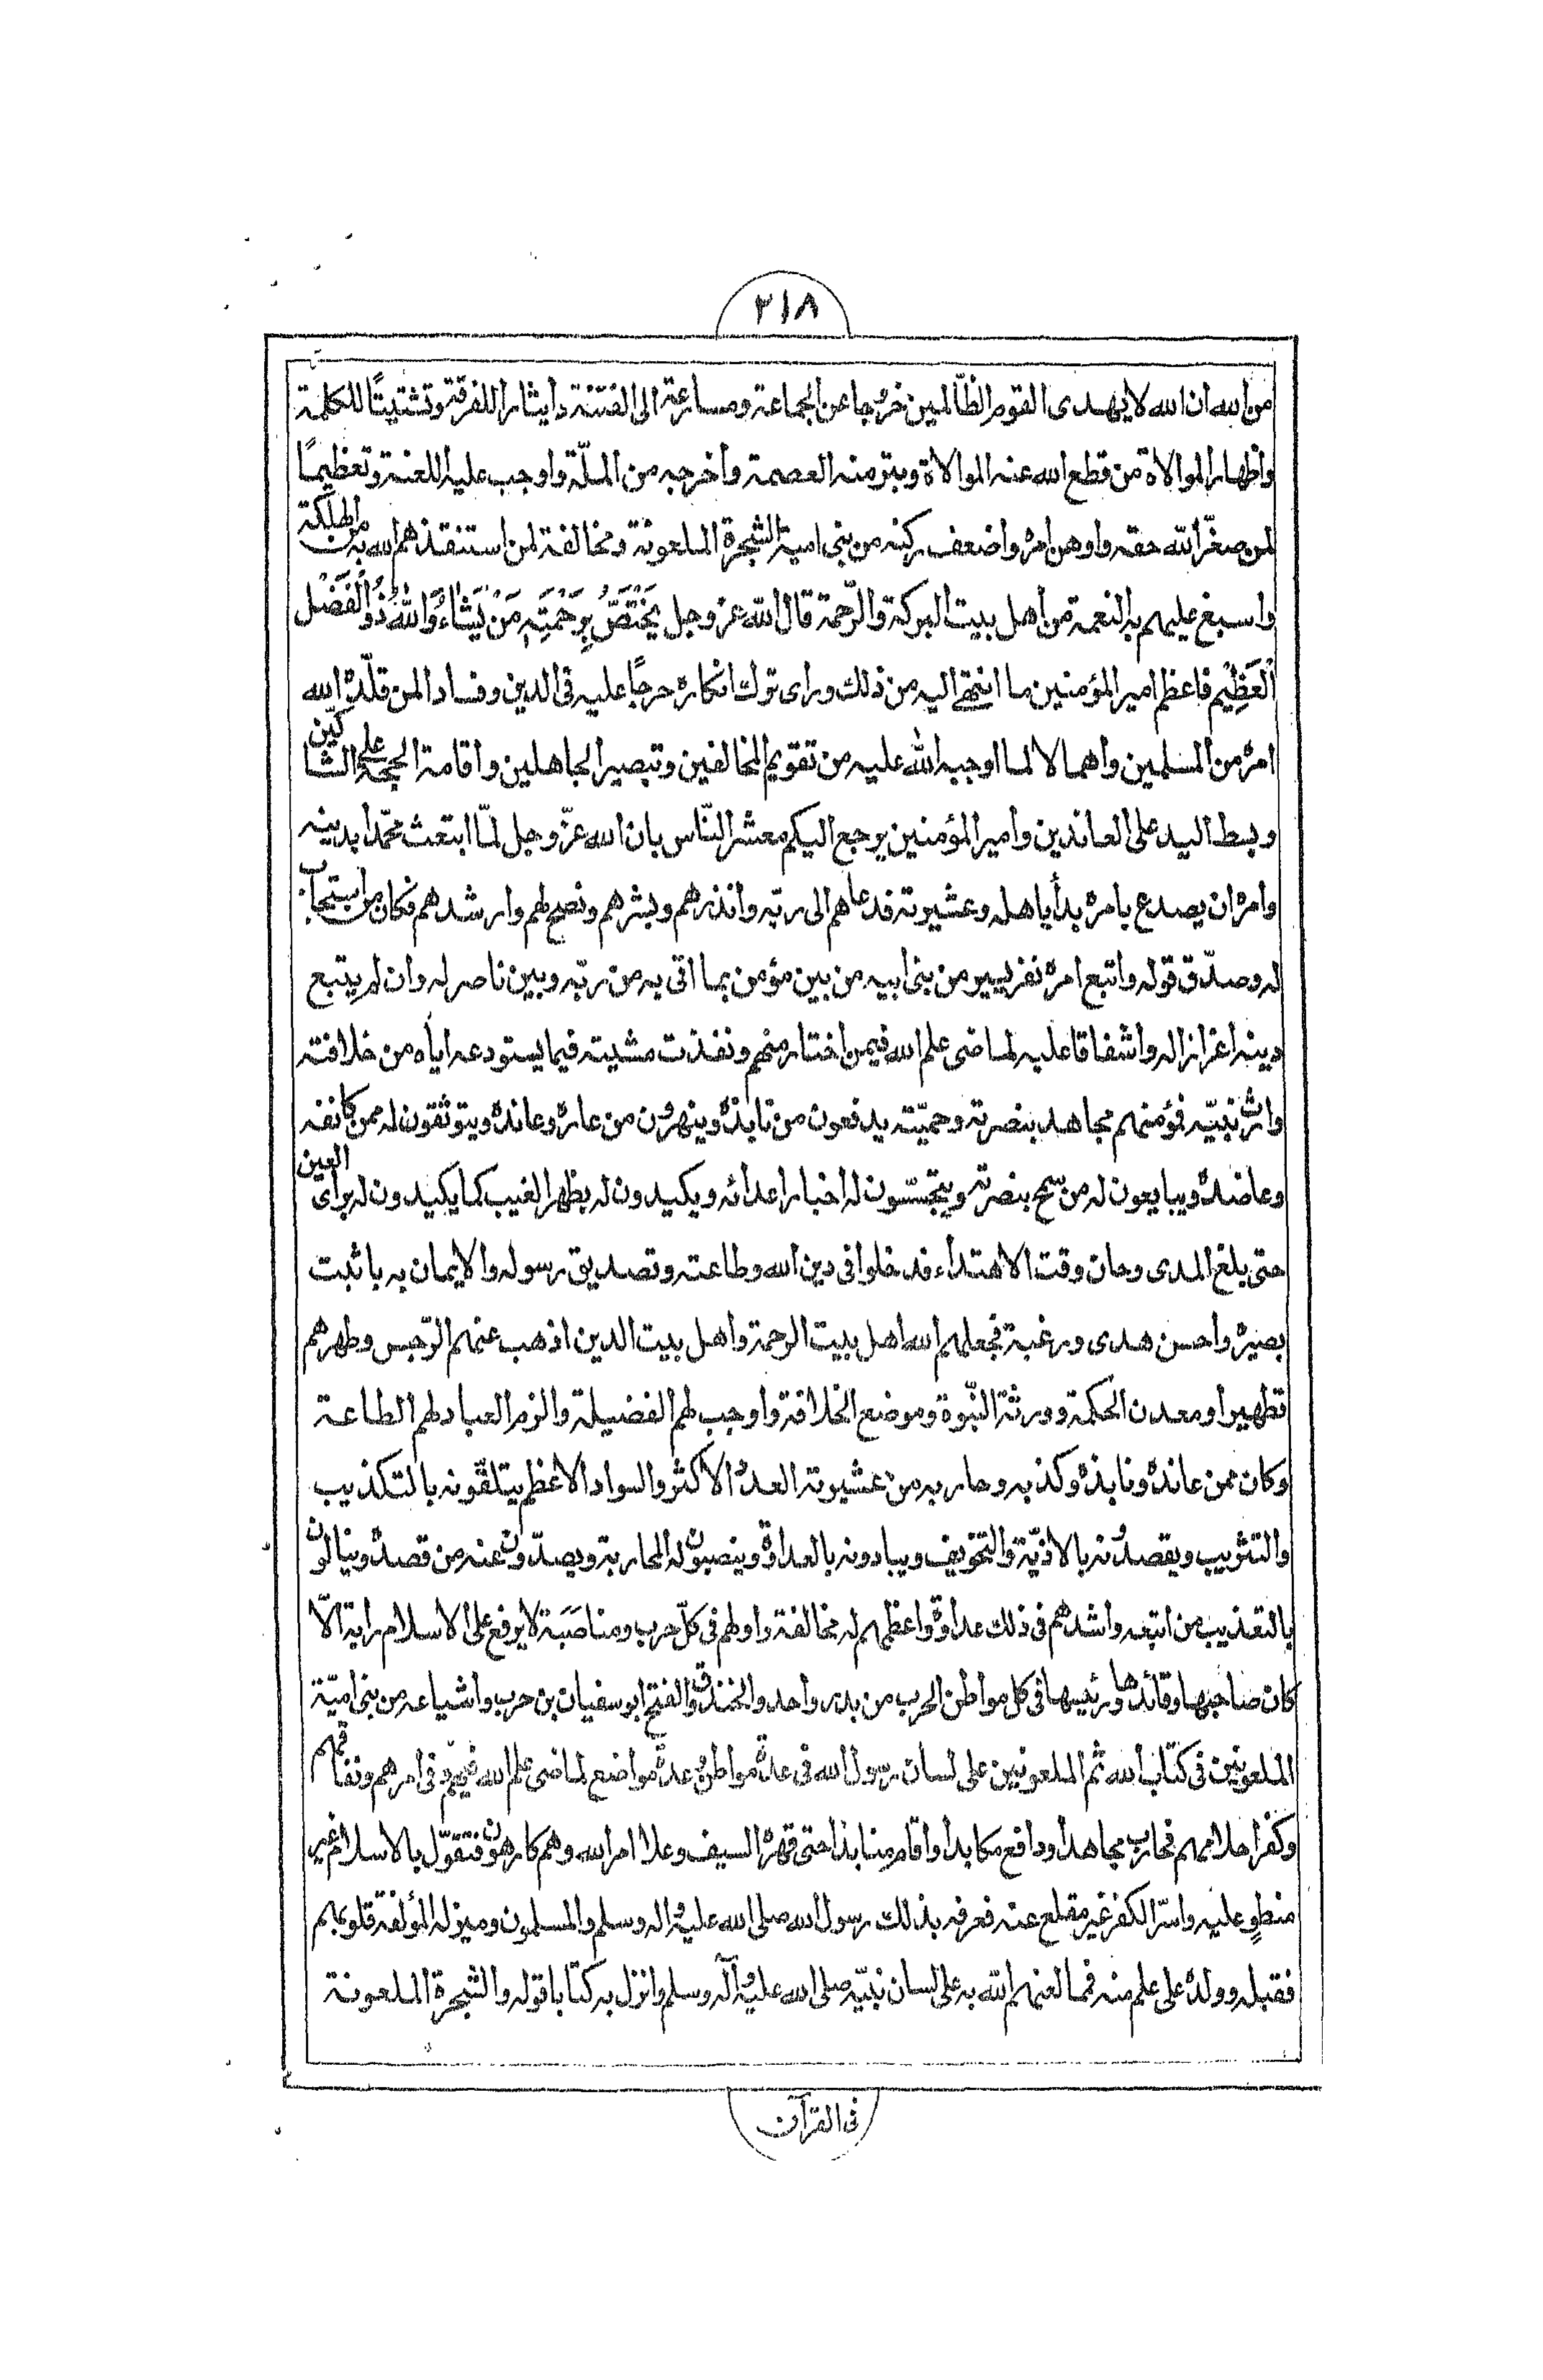 ٢١٨
من الله ان الله لا يهدى القوم الظّالمين خروجا عن الجماعة ومسارعة الى الفتنة وايثارا للفرقة وتشتيتًا للكلمة
واظهار الموالاة من قطع الله عنه الموالاة وبتر منه العصمة واخرجه من الملّة واوجب عليه اللعنة وتعظيمًا
لمن صغّر الله حقه واوهن امره واضعف ركنه من بنى امية الشجرة الملعونة ومخالفة لمن استنقذهم الله به من الهلكة
واسبغ عليهم به النعمة من اهل بيت البركة والرّحمة قال الله عز وجل يَخْتَصُّ بِرَحْمَتِهِ مَنْ يَشَاءُ وَاللّٰهُ ذُو الْفَضْلِ
الْعَظِيْمِ فاعظم امير المؤمنين ما انتهى اليه من ذلك وراى ترك انكاره حرجًا عليه فى الدين وفسادا لمن قلّده الله
امره من المسلمين واهمالا لما اوجبه الله عليه من تقويم المخالفين وتبصير الجاهلين واقامة الحجة على الشاكّين
وبسط اليد على العاندين وامير المؤمنين يرجع اليكم معشر النّاس بان الله عزّ وجل لمّا ابتعث محمّدا بدينه
وامره ان يصدع بامره بدأ باهله وعشيرته فدعاهم الى ربّه وانذرهم وبشرهم ونصح لهم وارشدهم فكان من استجاب
له وصدّق قوله واتبع امره نفر يسير من بنى ابيه من بين مؤمن بما اتى به من ربّه وبين ناصر له وان لم يتبع
دينه اعزازا له واشفاقا عليه لماضى علم الله فيمن اختار منهم ونفذت مشيته فيما يستودعه اياه من خلافته
وارث نبيّه فمؤمنهم مجاهد بنصرته وحميّته يدفعون من نابذه وينهرون من عاره وعانده ويتوثقون له ممن كانفه
وعاضده ويبايعون له من سمح بنصرته ويتجسّسون له اخبار اعدائه ويكيدون له بظهر الغيب كما يكيدون له براى العين
حتى بلغ المدى وحان وقت الاهتداء فدخلوا فى دين الله وطاعته وتصديق رسوله والايمان به باثبت
بصيره واحسن هدى ورغبة فجعلهم الله اهل بيت الرحمة واهل بيت الدين اذهب عنهم الرّجس وطهرهم
تطهيرا ومعدن الحكمة وورثة النّبوة وموضع الخلافة واوجب لهم الفضيلة والزم العباد لهم الطاعة
وكان ممن عانده ونابذه وكذبه وحاربه من عشيرته العدد الاكثر والسواد الاعظم يتلقّونه بالتكذيب
والتثريب ويقصدونه بالاذيّة والتخويف ويبادونه بالعداوة وينصبون له المحاربة ويصدّون عنه من قصده وينالون
بالتعذيب من اتبعه واشدهم فى ذلك عداوة واعظمهم له مخالفة واولهم فى كلّ حرب ومناصَبَة لا يرفع على الاسلام راية الّا
كان صاحبها وقائدها ورئيسها فى كل مواطن الحرب من بدر واحد والخندق والفتح ابو سفيان بن حرب واشياعه من بنى اميّة
الملعونين فى كتاب الله ثم الملعونين على لسان رسول الله فى عدة مواطن وعدة مواضع لماضى علم الله فيهم وفى امرهم ونفاقهم
وكفر احلامهم فحارب مجاهدا ودافع مكابدا واقام منابذا حتى قهره السيف وعلا امر الله وهم كارهون فتقوّل بالاسلام غير
منطوٍ عليه واسرّ الكفر غير مقلع عنه فعرفه بذلك رسول الله صلى الله عليه واله وسلم والمسلمون وميز له المؤلفة قلوبهم
فقبله وولده على علم منه فمما لعنهم الله به على لسان نبيّه صلى الله عليه وآله وسلم وانزل به كتابا قوله والشجرة الملعونة
فى القرآن